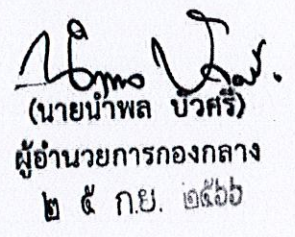 (นายนำพล บัวศรี)
ผู้อำนวยการกองกลาง
๒ ๕ ก.ย. ๒๕๖๖